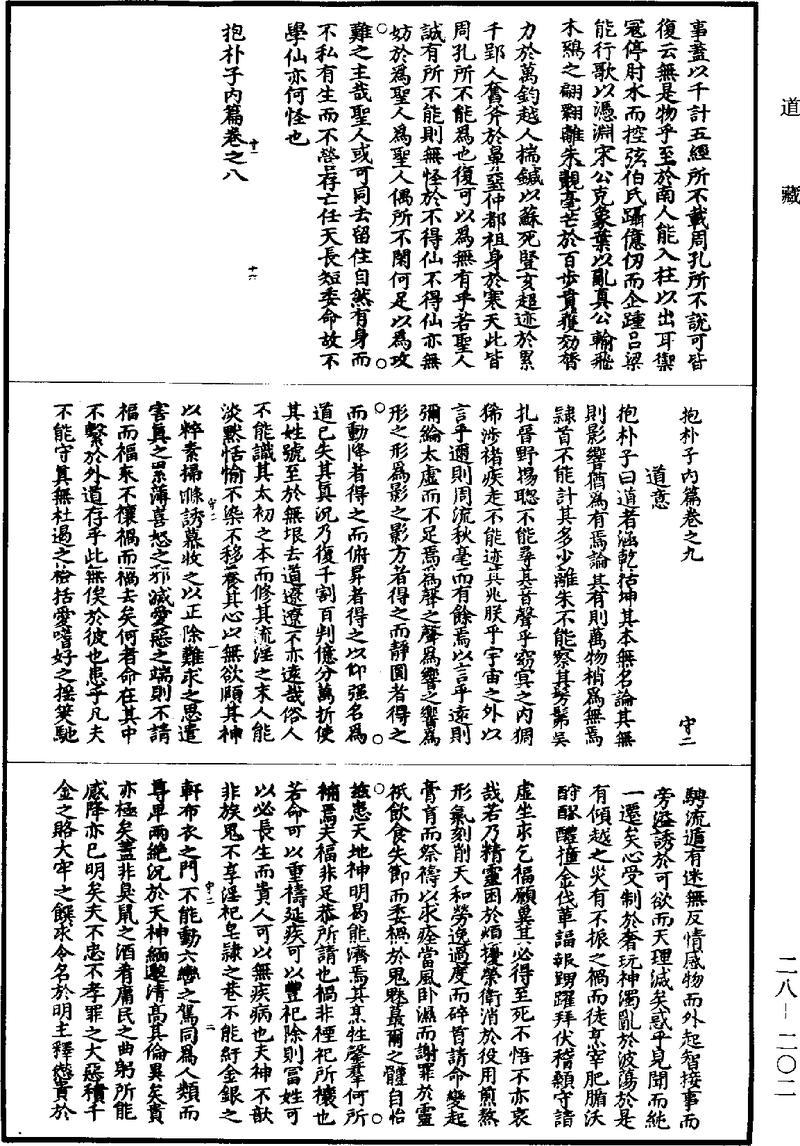 道藏
事蓋以千計五經所不載周孔所不說可皆
復云無是物乎至於南人能入柱以出耳禦
寇停肘水而控弦伯氏躡億仞而企踵呂梁
能行歌以憑淵宋公克象葉以亂真公輸飛
木鵄之翩翾離朱覿毫芒於百步賁獲効膂
力於萬鈞越人揣鍼以蘇死豎亥超迹於累
千郢人奮斧於鼻堊仲都袒身於寒天此皆
周孔所不能為也復可以為無有乎若聖人
誠有所不能則無怪於不得仙不得仙亦無
妨於為聖人為聖人偶所不閑何足以為攻
難之主哉聖人或可同去留任自然有身而
不私有生而不營存亡任天長短委命故不
學仙亦何怪也
抱朴子內篇卷之八
抱朴子內篇卷之九
守二
道意
抱朴子曰道者涵乾括坤其本無名論其無
則影響猶為有焉論其有則萬物稍為無焉
隸首不能計其多少離朱不能察其髣髴吳
札晉野揚聰不能尋其音聲乎窈冥之內猧
狶涉豬疾走不能迹其兆朕乎宇宙之外以
言乎邇則周流秋毫而有餘焉以言乎遠則
彌綸太虛而不足焉為聲之聲為響之響為
形之形為影之影方者得之而靜圓者得之
而動降者得之而俯昇者得之以仰强名為
道已失其真況乃復千割百判億分萬折使
其姓號至於無垠去道遼遼不亦遠哉俗人
不能識其太初之本而修其流淫之末人能
淡默恬愉不染不移養其心以無欲頤其神
以粹素掃滌誘慕收之以正除難求之思遣
害真之累薄喜怒之邪滅愛惡之端則不請
福而福來不禳禍而禍去矣何者命在其中
不繫於外道存乎此無俟於彼也患乎凡夫
不能守真無杜遏之檢括愛嗜好之搖奪馳
騁流遁有迷無反情感物而外起智接事而
旁溢誘於可欲而天理滅矣惑乎見聞而純
一遷矣心受制於奢玩神濁亂於波蕩於是
有傾越之災有不振之禍而徒烹宰肥腯沃
酹醪醴撞金伐革謳歌踴躍拜伏稽顙守請
虛坐求乞福願冀其必得至死不悟不亦哀
哉若乃精靈困於煩擾榮衛消於役用煎熬
形氣刻削天和勞逸過度而碎首請命變起
膏肓而祭禱以求痊當風卧濕而謝罪於靈
祇飲食失節而委禍於鬼魅蕞爾之體自怡
茲患天地神明曷能濟焉其烹牲罄羣何所
補焉夫福非足恭所請也禍非禋祀所禳也
若命可以重禱延疾可以豐祀除則冨姓可
以必長生而貴人可以無疾病也夫神不歆
非族鬼不享淫祀皂隸之巷不能紆金銀之
軒布衣之門不能動六轡之駕同為人類而
尊卑兩絕況於天神緬邈清高其倫異矣貴
亦極矣蓋非臭鼠之酒肴庸民之曲躬所能
感降亦已明矣夫不忠不孝罪之大惡積千
金之賂大牢之饌求令名於明主釋愆責於
二八－二〇二